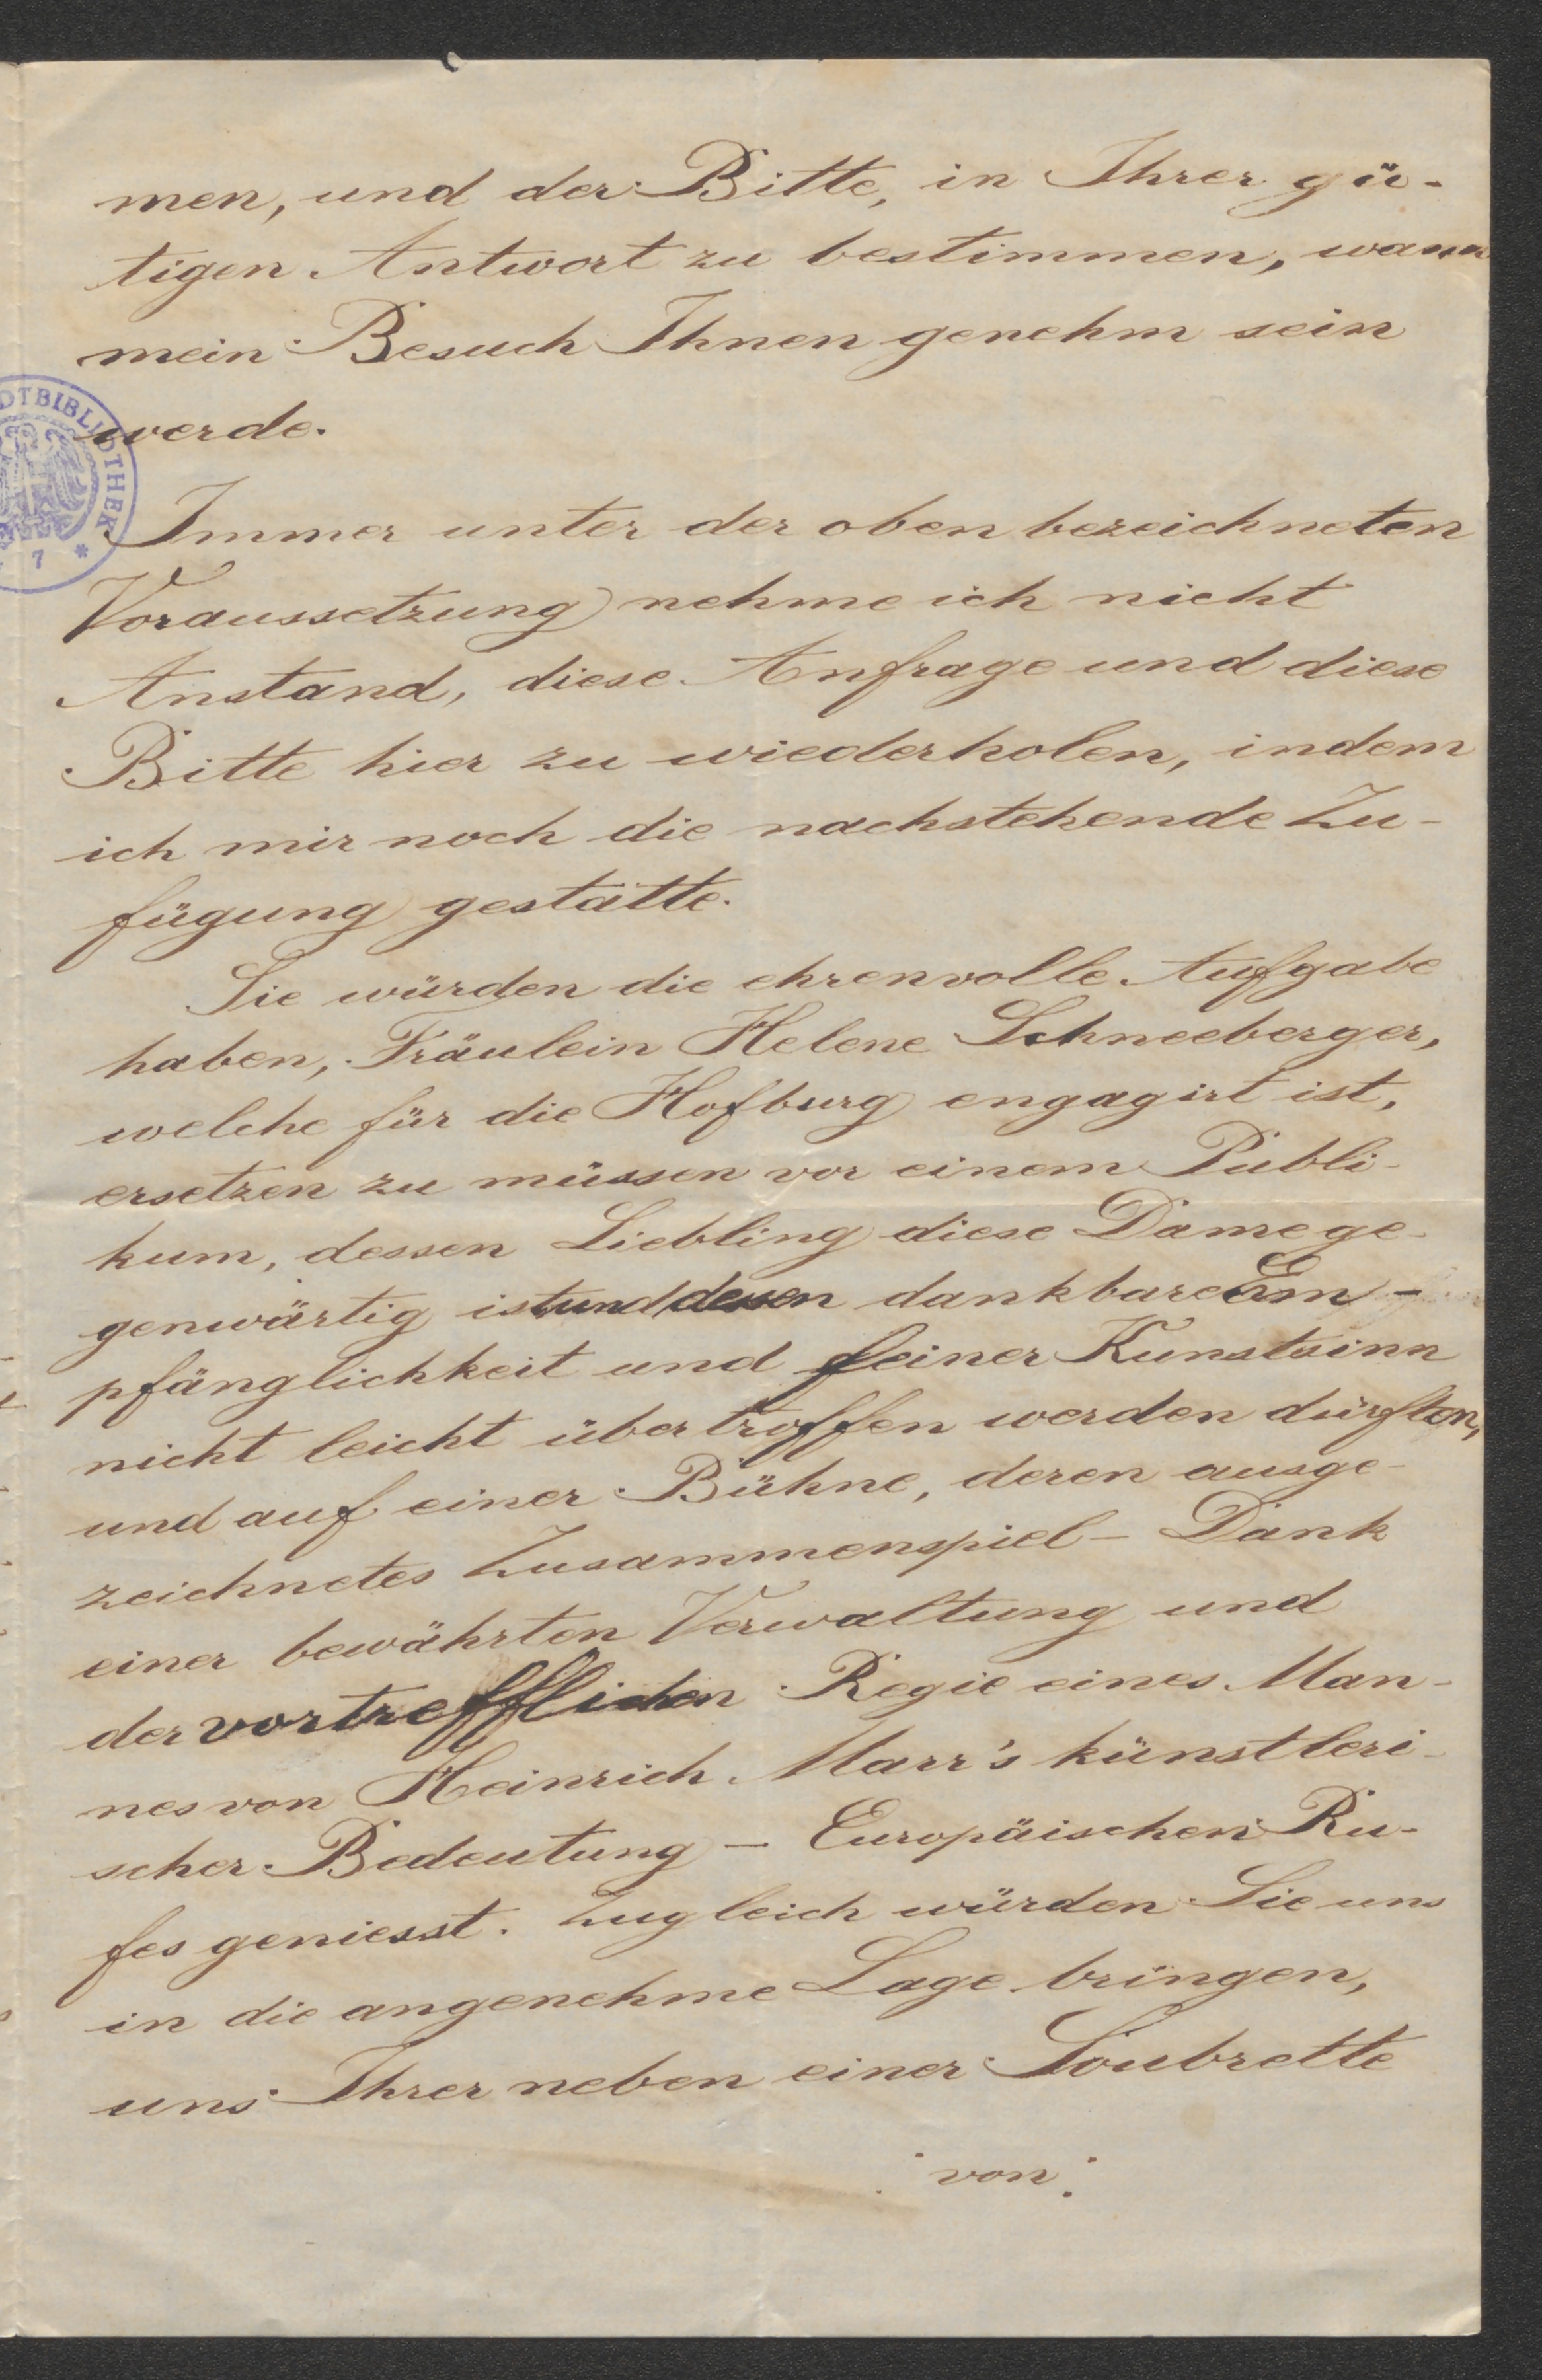 men, und der Bitte, in Ihrer gü-
tigen Antwort zu bestimmen, wann
mein Besuch Ihnen genehm sein
werde.
DTBIBLIOTHEK
7 *
Immer unter der oben bezeichneten
Voraussetzung nehme ich nicht
Anstand, diese Anfrage und diese
Bitte hier zu wiederholen, indem
ich mir noch die nachstehende Zu-
fügung gestatte.
Sie würden die ehrenvolle Aufgabe
haben, Fräulein Helene Schneeberger,
welche für die Hofburg engagirt ist,
ersetzen zu müssen vor einem Publi-
kum, dessen Liebling diese Dame ge-
genwärtig ist und dessen dankbare Em-
pfänglichkeit und feiner Kunstsinn
nicht leicht übertroffen werden dürften,
und auf einer Bühne, deren ausge-
zeichnetes Zusammenspiel - Dank
einer bewährten Verwaltung und
der vortrefflichen Regie eines Man-
nes von Heinrich Marr's künstleri-
scher Bedeutung - Europäischen Ru-
fes geniesst. Zugleich würden Sie uns
in die angenehme Lage bringen,
uns Ihrer neben einer Soubrette
von